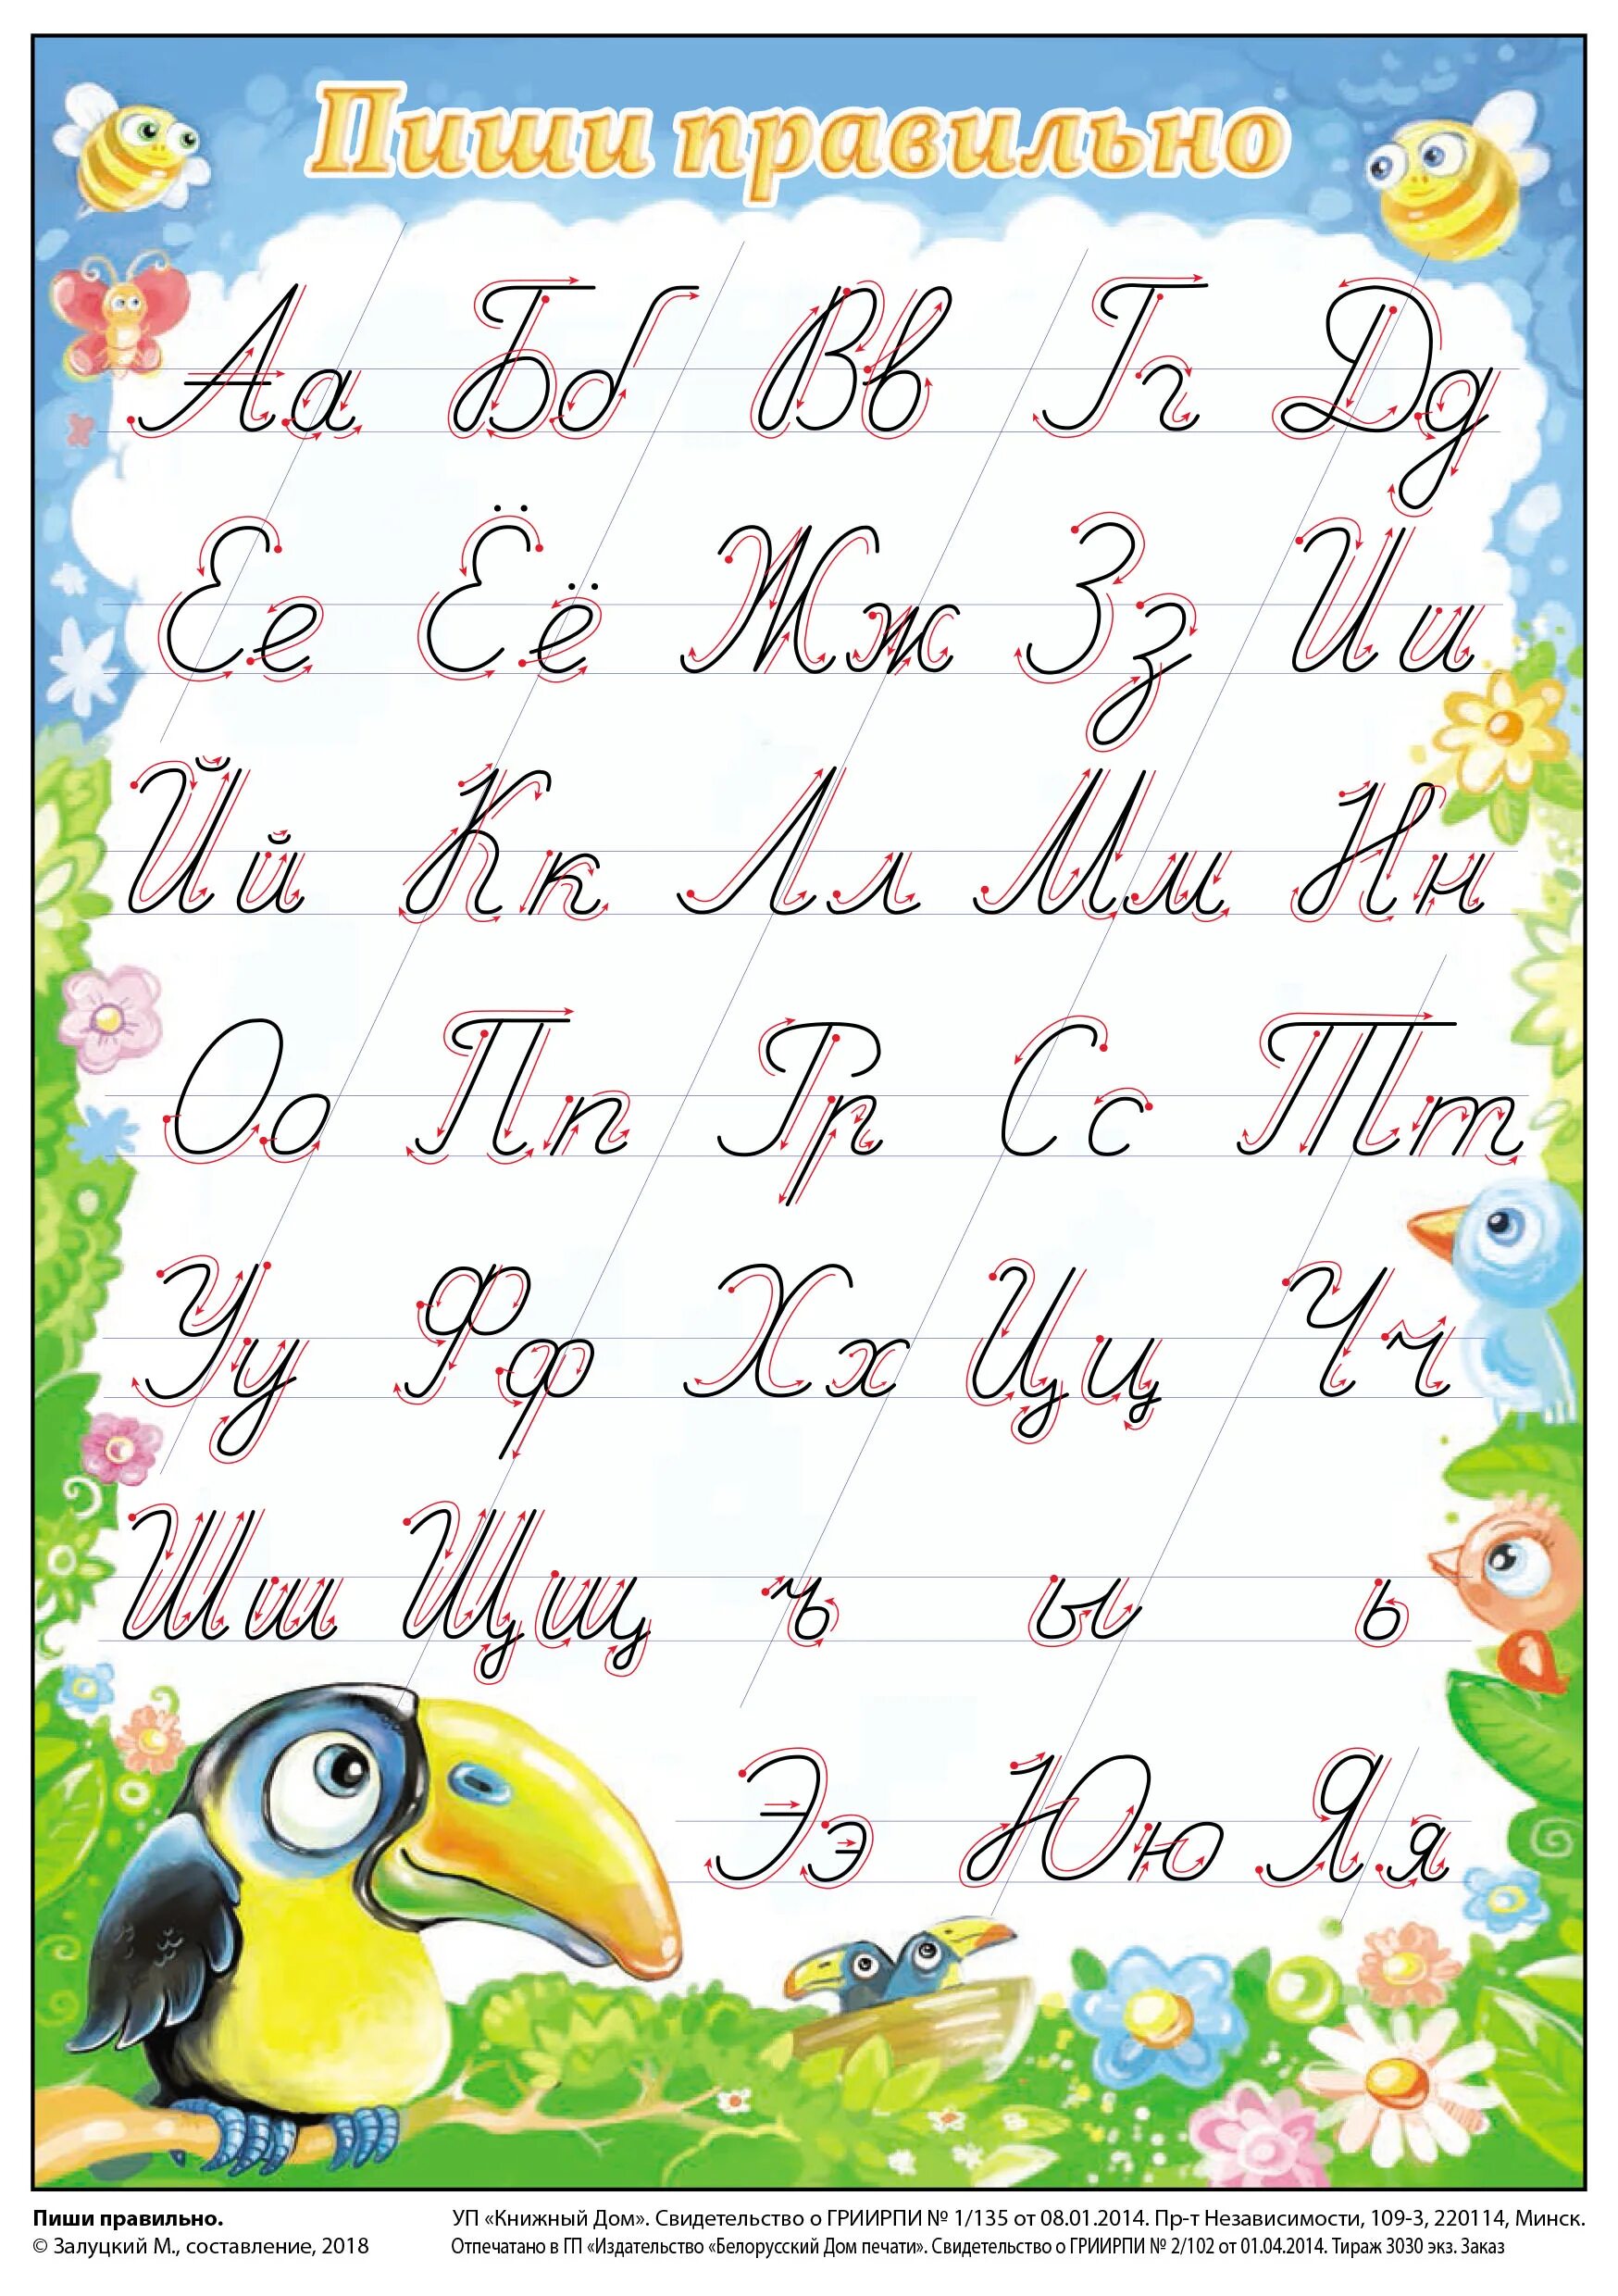 Пиши правильно
Аа Бб Вв Гг Дд
Ее Ёё Жж Зз Ии
Йй Кк Лл Мм Нн
Оо Пп Рр Сс Тт
Уу Фф Хх Цц Чч
Шш Щщ ъ ы ь
Ээ Юю Яя
Пиши правильно.
© Залуцкий М., составление, 2018
УП «Книжный Дом». Свидетельство о ГРИИРПИ № 1/135 от 08.01.2014. Пр-т Независимости, 109-3, 220114, Минск.
Отпечатано в ГП «Издательство «Белорусский Дом печати». Свидетельство о ГРИИРПИ № 2/102 от 01.04.2014. Тираж 3030 экз. Заказ